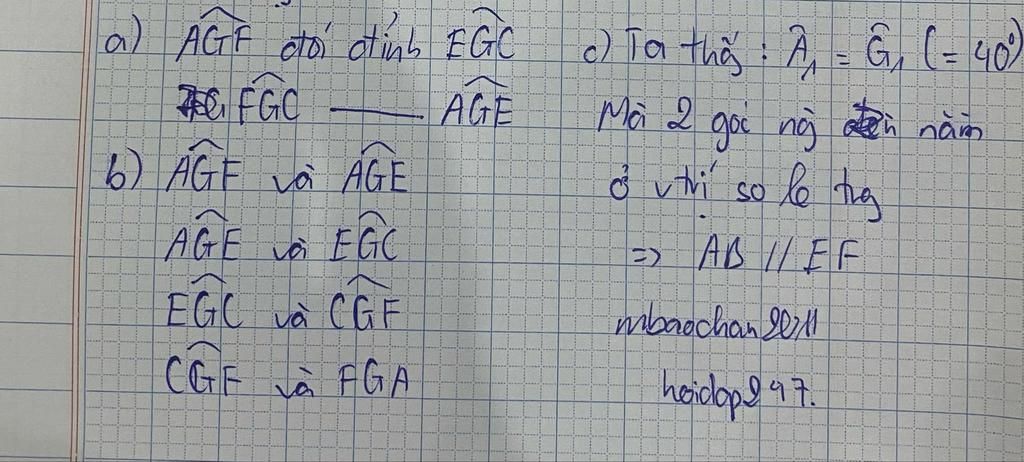 a) AGF đối đỉnh EGC
FGC —— AGE
b) AGF và AGE
AGE và EGC
EGC và CGF
CGF và FGA
c) Ta thấy : A₁ = G₁ (= 40°)
Mà 2 góc này nằm
ở vtrí so le trg
=> AB // EF
mbaochan2011
hoidap247.